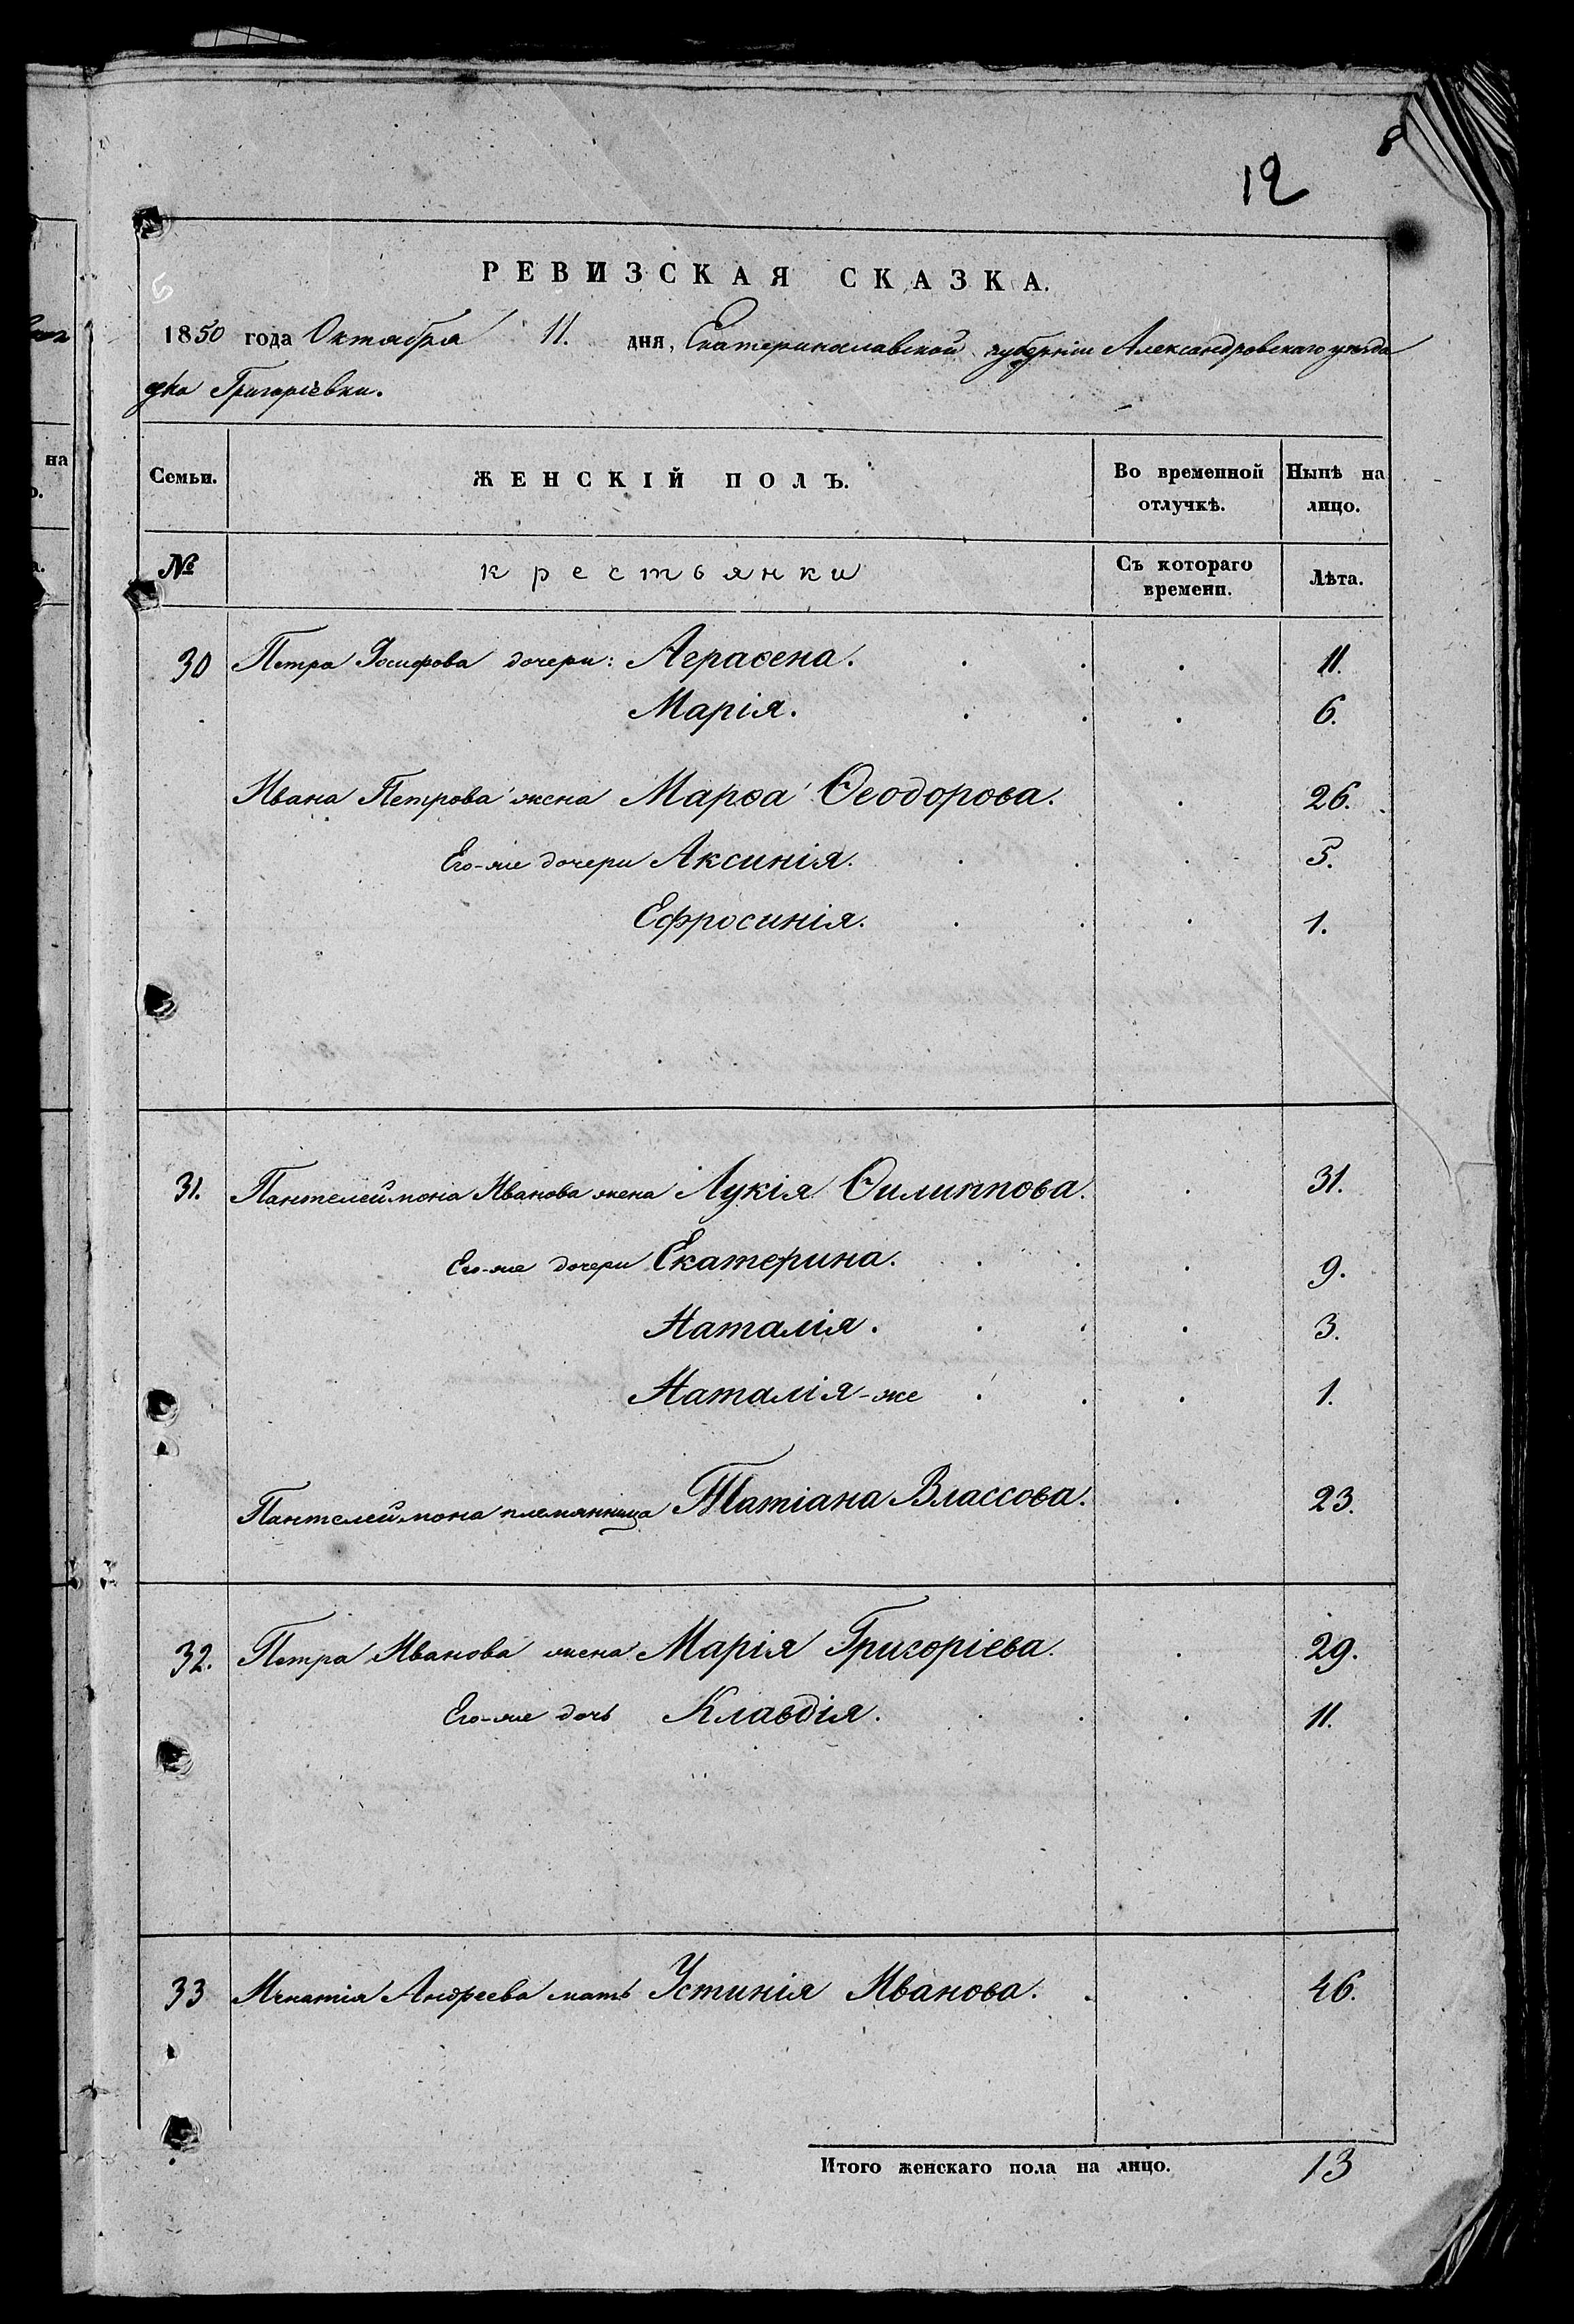 12
РЕВИЗСКАЯ СКАЗКА.
1850 года Октября 11. дня, Екатеринославской губерніи Александровскаго уѣзда
Григоріевки.
Семьи. ЖЕНСКІЙ ПОЛЪ. Во временной отлучкѣ. Нынѣ на лицо.
№ крестьянки Съ котораго времени. Лѣта.
30 Петра Іосифова дочери: Аграѳена. 11.
Марія. 6.
Ивана Петрова жена Марѳа Ѳеодорова. 26.
Его-же дочери Аксинія. 5.
Ефросинія. 1.
31. Пантелеймона Иванова жена Лукія Ѳилиппова. 31.
Его-же дочери Екатерина. 9.
Наталія. 3.
Наталія-же 1.
Пантелеймона племянница Татіана Влассова. 23.
32. Петра Иванова жена Марія Григоріева. 29.
Его-же дочь Клавдія. 11.
33 Игнатія Андреева мать Устинія Иванова. 46.
Итого женскаго пола на лицо. 13